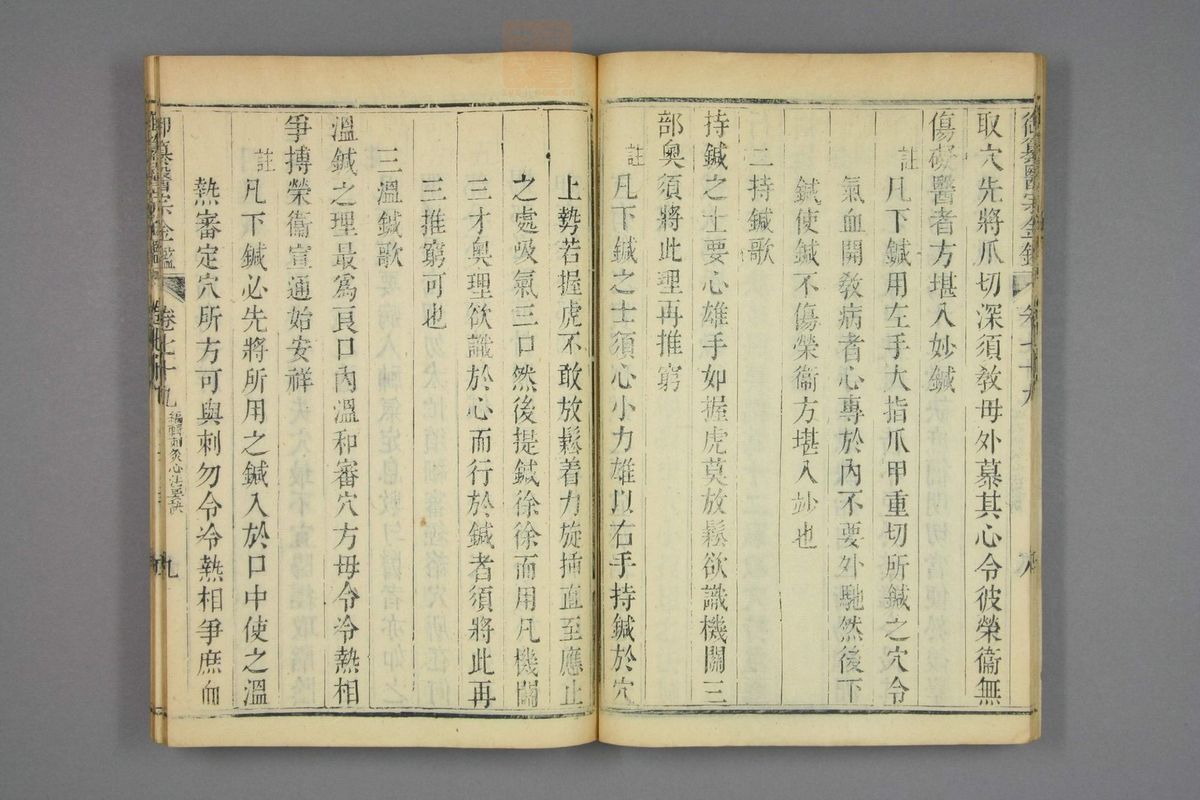 取穴先將爪切深須敎毋外慕其心令彼榮衞無
傷礙醫者方堪入妙鍼
註凡下鍼用左手大指爪甲重切所鍼之穴令
氣血開敎病者心專於內不要外馳然後下
鍼使鍼不傷榮衞方堪入妙也
二持鍼歌
持鍼之士要心雄手如握虎莫放鬆欲識機關三
部奧須將此理再推窮
註凡下鍼之士須心小力雄以右手持鍼於穴
上勢若握虎不敢放鬆着力旋揷直至應止
之處吸氣三口然後提鍼徐徐而用凡機關
三才奧理欲識於心而行於鍼者須將此再
三推窮可也
三溫鍼歌
溫鍼之理最爲良口內溫和審穴方毋令冷熱相
爭搏榮衞宣通始安祥
註凡下鍼必先將所用之鍼入於口中使之溫
熱審定穴所方可與刺勿令冷熱相爭庶血
御纂醫宗金鑑 卷七十九 編輯刺灸心法要訣 九